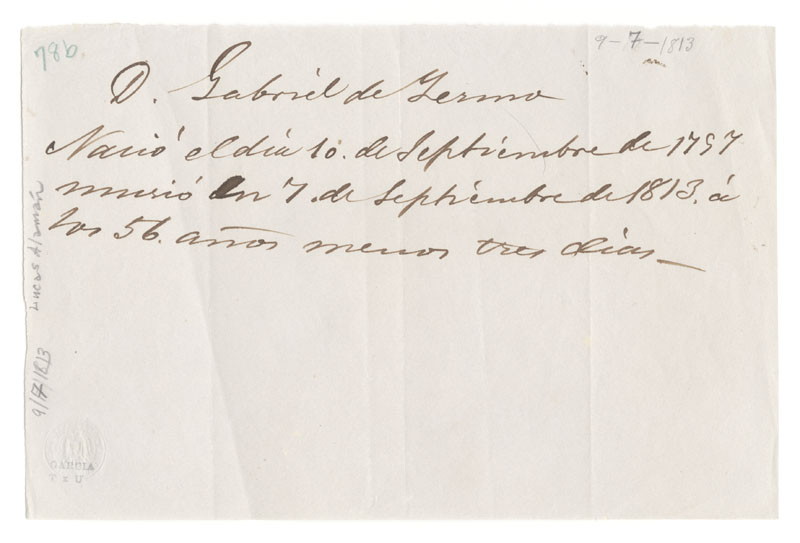 78b.
9-7-1813
D. Gabriel de Yermo
Nació el día 10. de Septiembre de 1757
murió en 7. de Septiembre de 1813. á
los 56. años menos tres días_
Lucas Alamán
9/7/1813
GARCIA